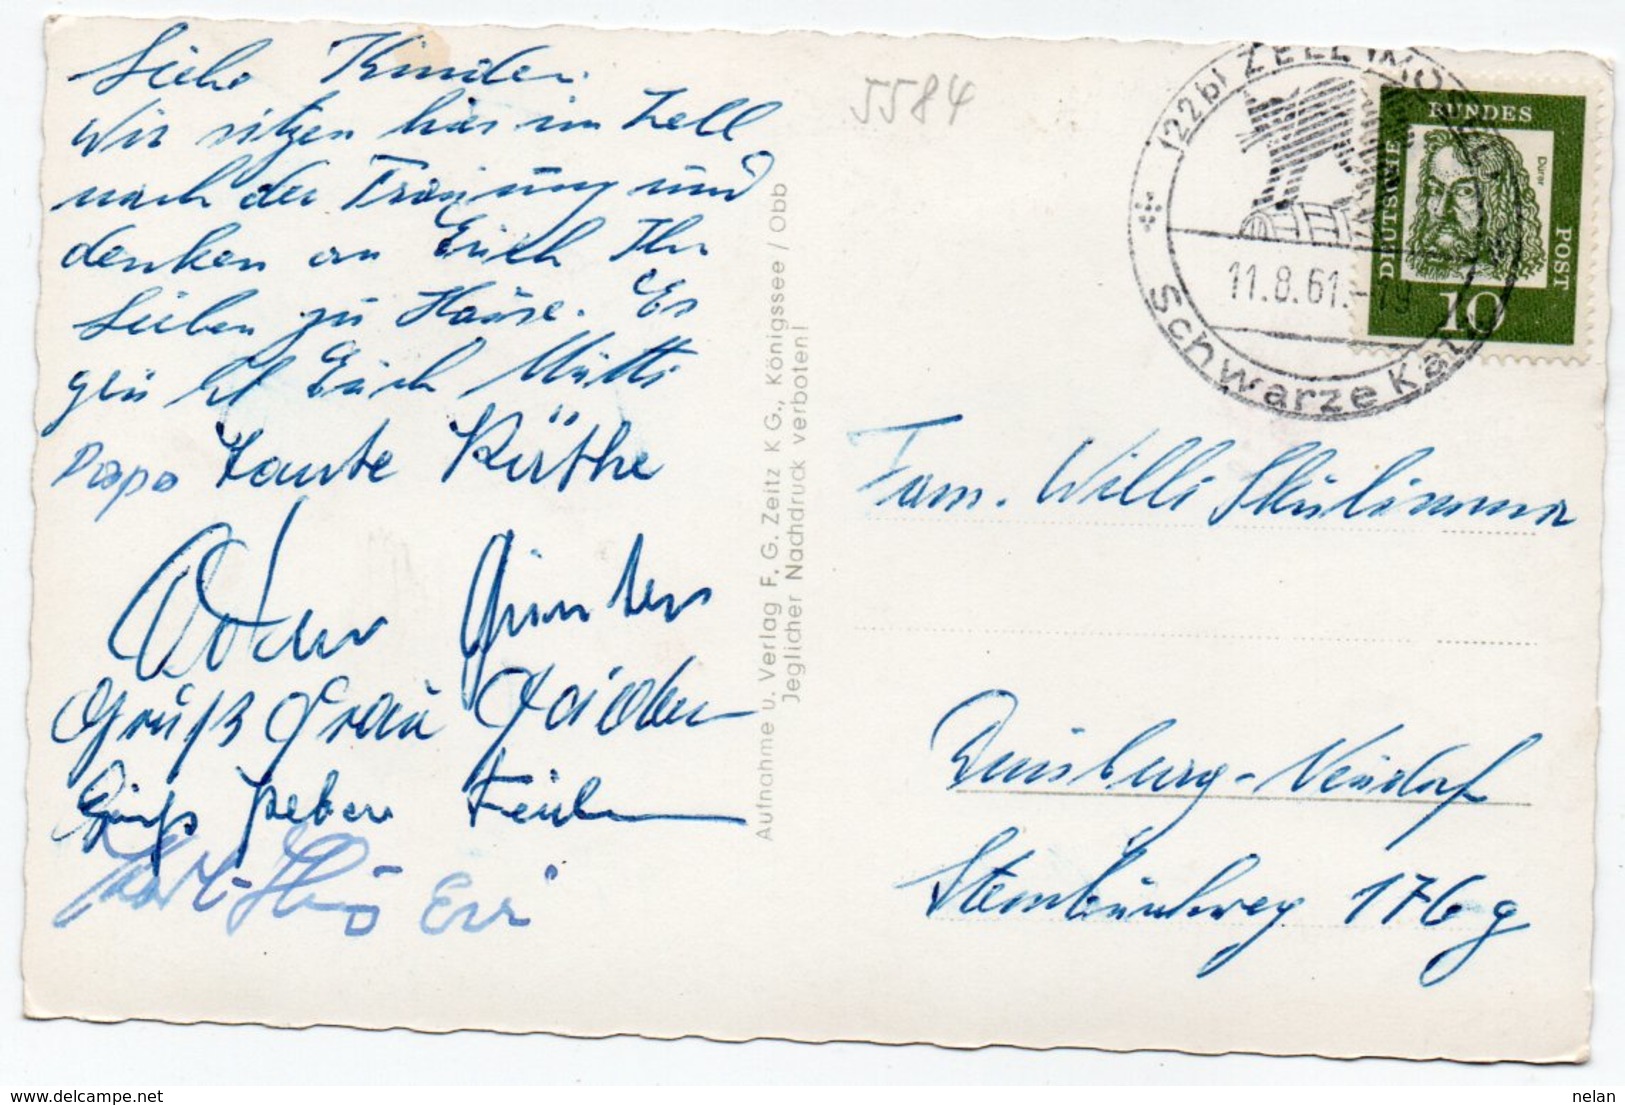 Liebe Kinder.
Wir sitzen hier in Zell
nach der Trauung und
denken an Euch Ihr
Lieben zu Hause. Es
grüßt Euch Mutti
Papa Tante Käthe
Günter
Gruß Frau
Gruß
Aufnahme u. Verlag F. G. Zeitz K G., Königssee / Obb
Jeglicher Nachdruck verboten!
5584
(22b) ZELL (MOSEL)
11.8.61.-19
Schwarze Kat
DEUTSCHE
BUNDES
POST
Dürer
10
Fam. Willi
Duisburg-Neudorf
Sternbuschweg 176g
nelan